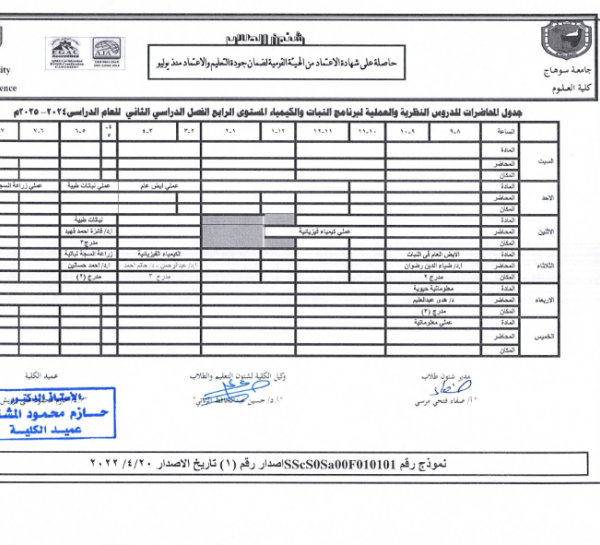 شئون الطلاب
جامعة سوهاج
كلية العلوم
حاصلة على شهادة الاعتماد من الهيئة القومية لضمان جودة التعليم والاعتماد منذ يوليو
EGAC
جدول المحاضرات للدروس النظرية والعملية لبرنامج النبات والكيمياء المستوى الرابع الفصل الدراسي الثاني للعام الدراسى ٢٠٢٤- ٢٠٢٥م
الساعة ٨-٩ ٩-١٠ ١٠-١١ ١١-١٢ ١٢-١ ١-٢ ٢-٣ ٣-٤ ٥-٦ ٦-٧
السبت
المادة
المحاضر
المكان
الاحد
المادة عملي ايض عام عملي نباتات طبية
المحاضر
المكان
الاثنين
المادة نباتات طبية
المحاضر عملي كيمياء فيزيائية ا.د/ فائزة احمد فهيد
المكان مدرج٣
الثلاثاء
المادة الايض العام فى النبات الكيمياء الفيزيائية زراعة انسجة نباتية
المحاضر ا.د/ ضياء الدين رضوان ا.د/ احمد حسانين
المكان مدرج ٢ مدرج ٣ مدرج (٢)
الاربعاء
المادة معلوماتية حيوية
المحاضر د/ هدى عبدالعليم
المكان مدرج (٣)
الخميس
المادة عملي معلوماتية
المحاضر
المكان
مدير شئون طلاب
وكيل الكلية لشئون التعليم والطلاب
عميد الكلية
أ/ صفاء فتحي مرسي
الأستاذ الدكتور
حازم محمود
عميد الكلية
نموذج رقم SScS0Sa00F010101اصدار رقم (١) تاريخ الاصدار ٢٠ /٤/ ٢٠٢٢